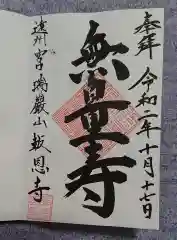 奉拝 令和二年十月十七日
無量壽
遠州 瑞巌山 報恩寺